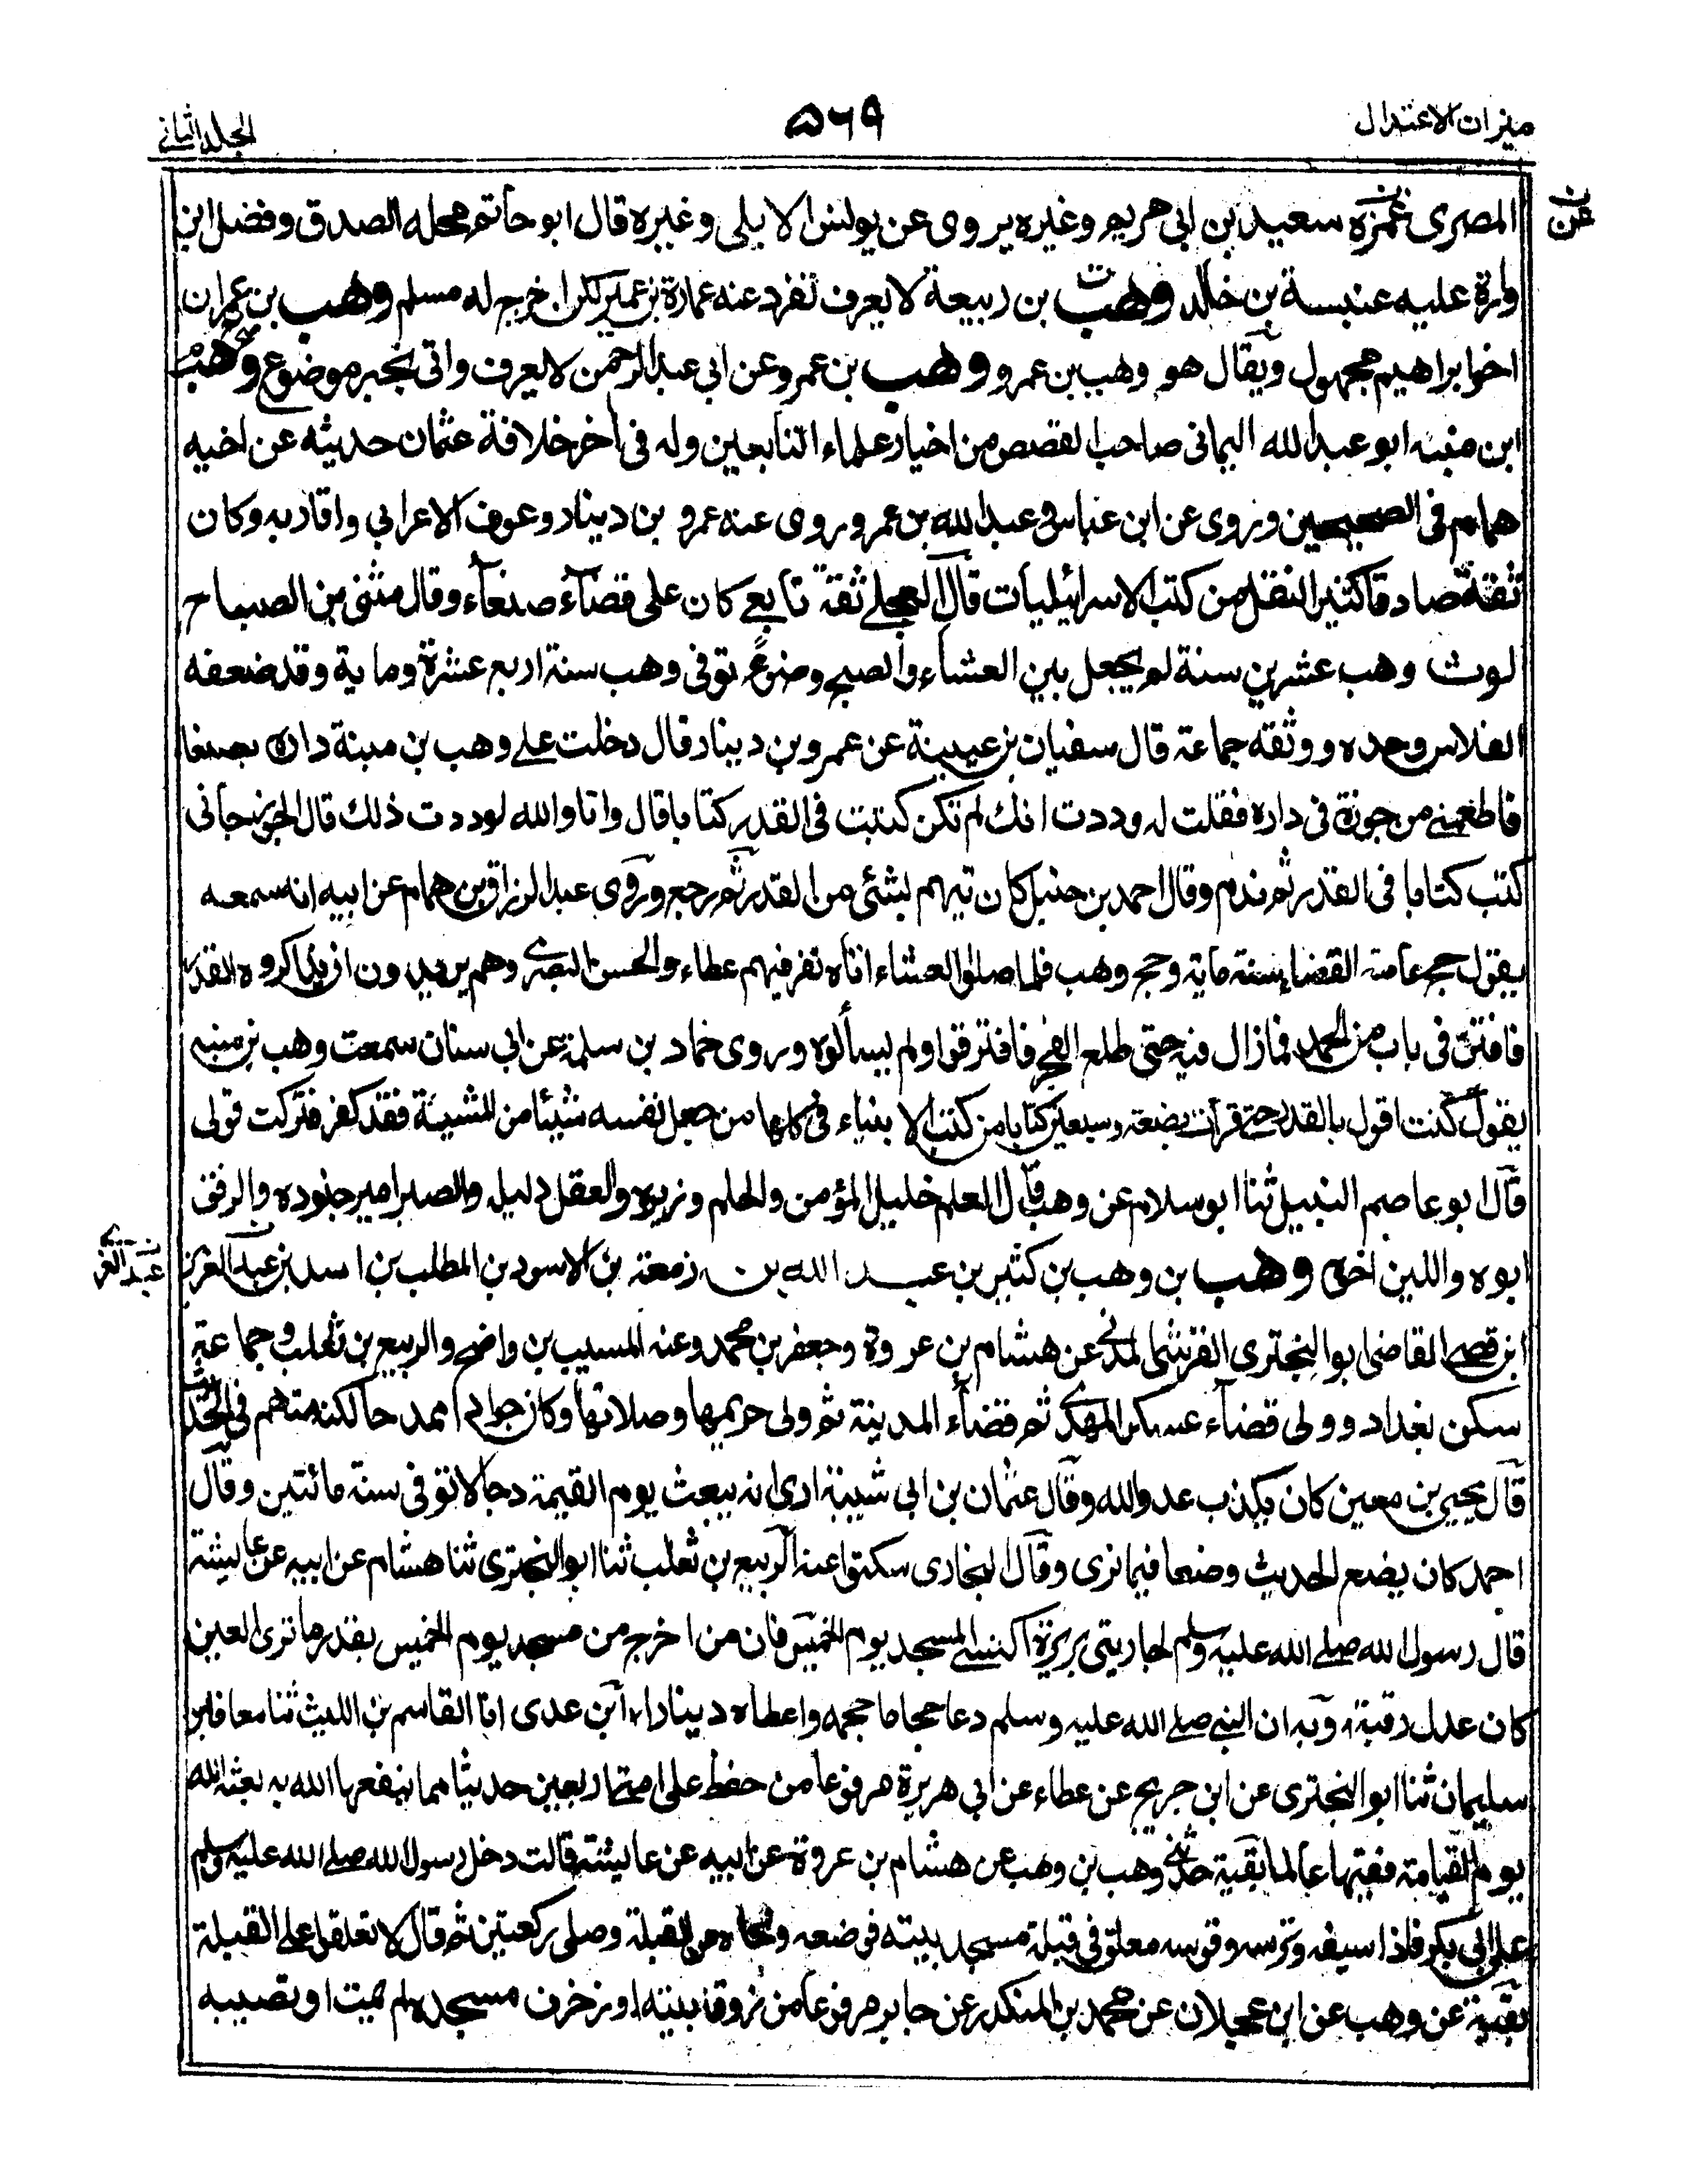 ميزان الاعتدال
٥٦٩
الجلد الثاني
عن
المصرى غمزه سعيد بن ابى مريم وغيره يروى عن يونس الايلى وغيره قال ابو حاتم محله الصدق وفضل ابن
وارة عليه عنبسة بن خالد وهب بن ربيعة لا يعرف تفرد عنه عمارة بن عمير لكن اخرج له مسلم وهب بن عمران
اخو ابراهيم مجهول ويقال هو وهب بن عمرو وهب بن عمرو عن ابى عبد الرحمن لا يعرف واتى بخبر موضوع وهب
ابن منبه ابو عبد الله اليمانى صاحب القصص من اخيار علماء التابعين ولد فى اخر خلافة عثمان حديثه عن اخيه
همام فى الصحيحين وروى عن ابن عباس وعبد الله بن عمر وروى عنه عمرو بن دينار وعوف الاعرابي واقاربه وكان
ثقة صادقا كثير النقل من كتب الاسرائيليات قال العجلي ثقة تابعي كان على قضاء صنعاء وقال مثنى بن الصباح
لبث وهب عشرين سنة لم يجعل بين العشاء والصبح وضوءً توفى وهب سنة اربع عشرة وماية وقد ضعفه
الفلاس وحده ووثقه جماعة قال سفيان بن عيينة عن عمرو بن دينار قال دخلت على وهب بن منبة داره بصنعا
فاطعمني من جوزة فى داره فقلت له وددت انك لم تكن كتبت فى القدر كتابا قال وانا والله لوددت ذلك قال الجوزجانى
كتب كتابا فى القدر ثم ندم وقال احمد بن حنبل كان يتهم بشئى من القدر ثم رجع وروى عبد الرزاق بن همام عن ابيه انه سمعه
يقول حج عامة القضاء سنة ماية وحج وهب فلما صلوا العشاء اتاه نفر فيهم عطاء والحسن البصرى وهم يريدون ان يذاكروه القدر
فافتن فى باب من الحمد فما زال فيه حتى طلع الفجر فافترقوا ولم يسألوه وروى حماد بن سلمة عن ابى سنان سمعت وهب بن منبه
يقول كنت اقول بالقدر حتى قرات بضعة وسبعين كتابا من كتب الانبياء فى كلها من جعل لنفسه شيئا من المشيئة فقد كفر فتركت قولى
قال ابو عاصم النبيل ثنا ابو سلام عن وهب قال العلم خليل المؤمن والحلم وزيره والعقل دليله والصبر امير جنوده والرفق
ابوه واللين اخوه وهب بن وهب بن كثير بن عبد الله بن زمعة بن الاسود بن المطلب بن اسد بن عبد العزيز
عبد العزى
ابن قصي القاضى ابو البخترى القرشى المدنى عن هشام بن عروة وجعفر بن محمد وعنه المسيب بن واضح والربيع بن ثعلب وجماعة
سكن بغداد وولى قضاء عسكر المهدى ثم قضاء المدينة ثم ولى حربها وصلاتها وكان جوادا ممدحا لكنه متهم فى الحديث
قال يحيى بن معين كان يكذب عدو الله وقال عثمان بن ابى شيبة ارى انه يبعث يوم القيمة دجالا توفى سنة مائتين وقال
احمد كان يضع الحديث وضعا فيما نرى وقال البخارى سكتوا عنه الربيع بن ثعلب ثنا ابو البخترى ثنا هشام عن ابيه عن عايشة
قال رسول الله صلى الله عليه وسلم لجاريتى بريرة اكنسى المسجد يوم الخميس فان من اخرج من مسجد يوم الخميس بقدر ما ترى العين
كان عدل رقبة، وبه ان النبي صلى الله عليه وسلم دعا حجاما حجمه واعطاه دينارا، ابن عدى انا القاسم بن الليث ثنا معافى بن
سليمان ثنا ابو البخترى عن ابن جريج عن عطاء عن ابى هريرة مرفوعا من حفظ على امتى اربعين حديثا مما ينفعها الله به بعثه الله
يوم القيامة فقيها عالما بقية حدثني وهب بن وهب عن هشام بن عروة عن ابيه عن عايشة قالت دخل رسول الله صلى الله عليه وسلم
على ابى بكر فاذا سيفه وترسه وقوسه معلق فى قبلة مسجد بيته فوضعه ونحاه من القبلة وصلى ركعتين ثم قال لا تعلقوا على القبلة
بقية عن وهب عن ابن عجلان عن محمد بن المنكدر عن جابر مرفوعا من زوق بيته او زخرف مسجده لم يمت او تصيبه